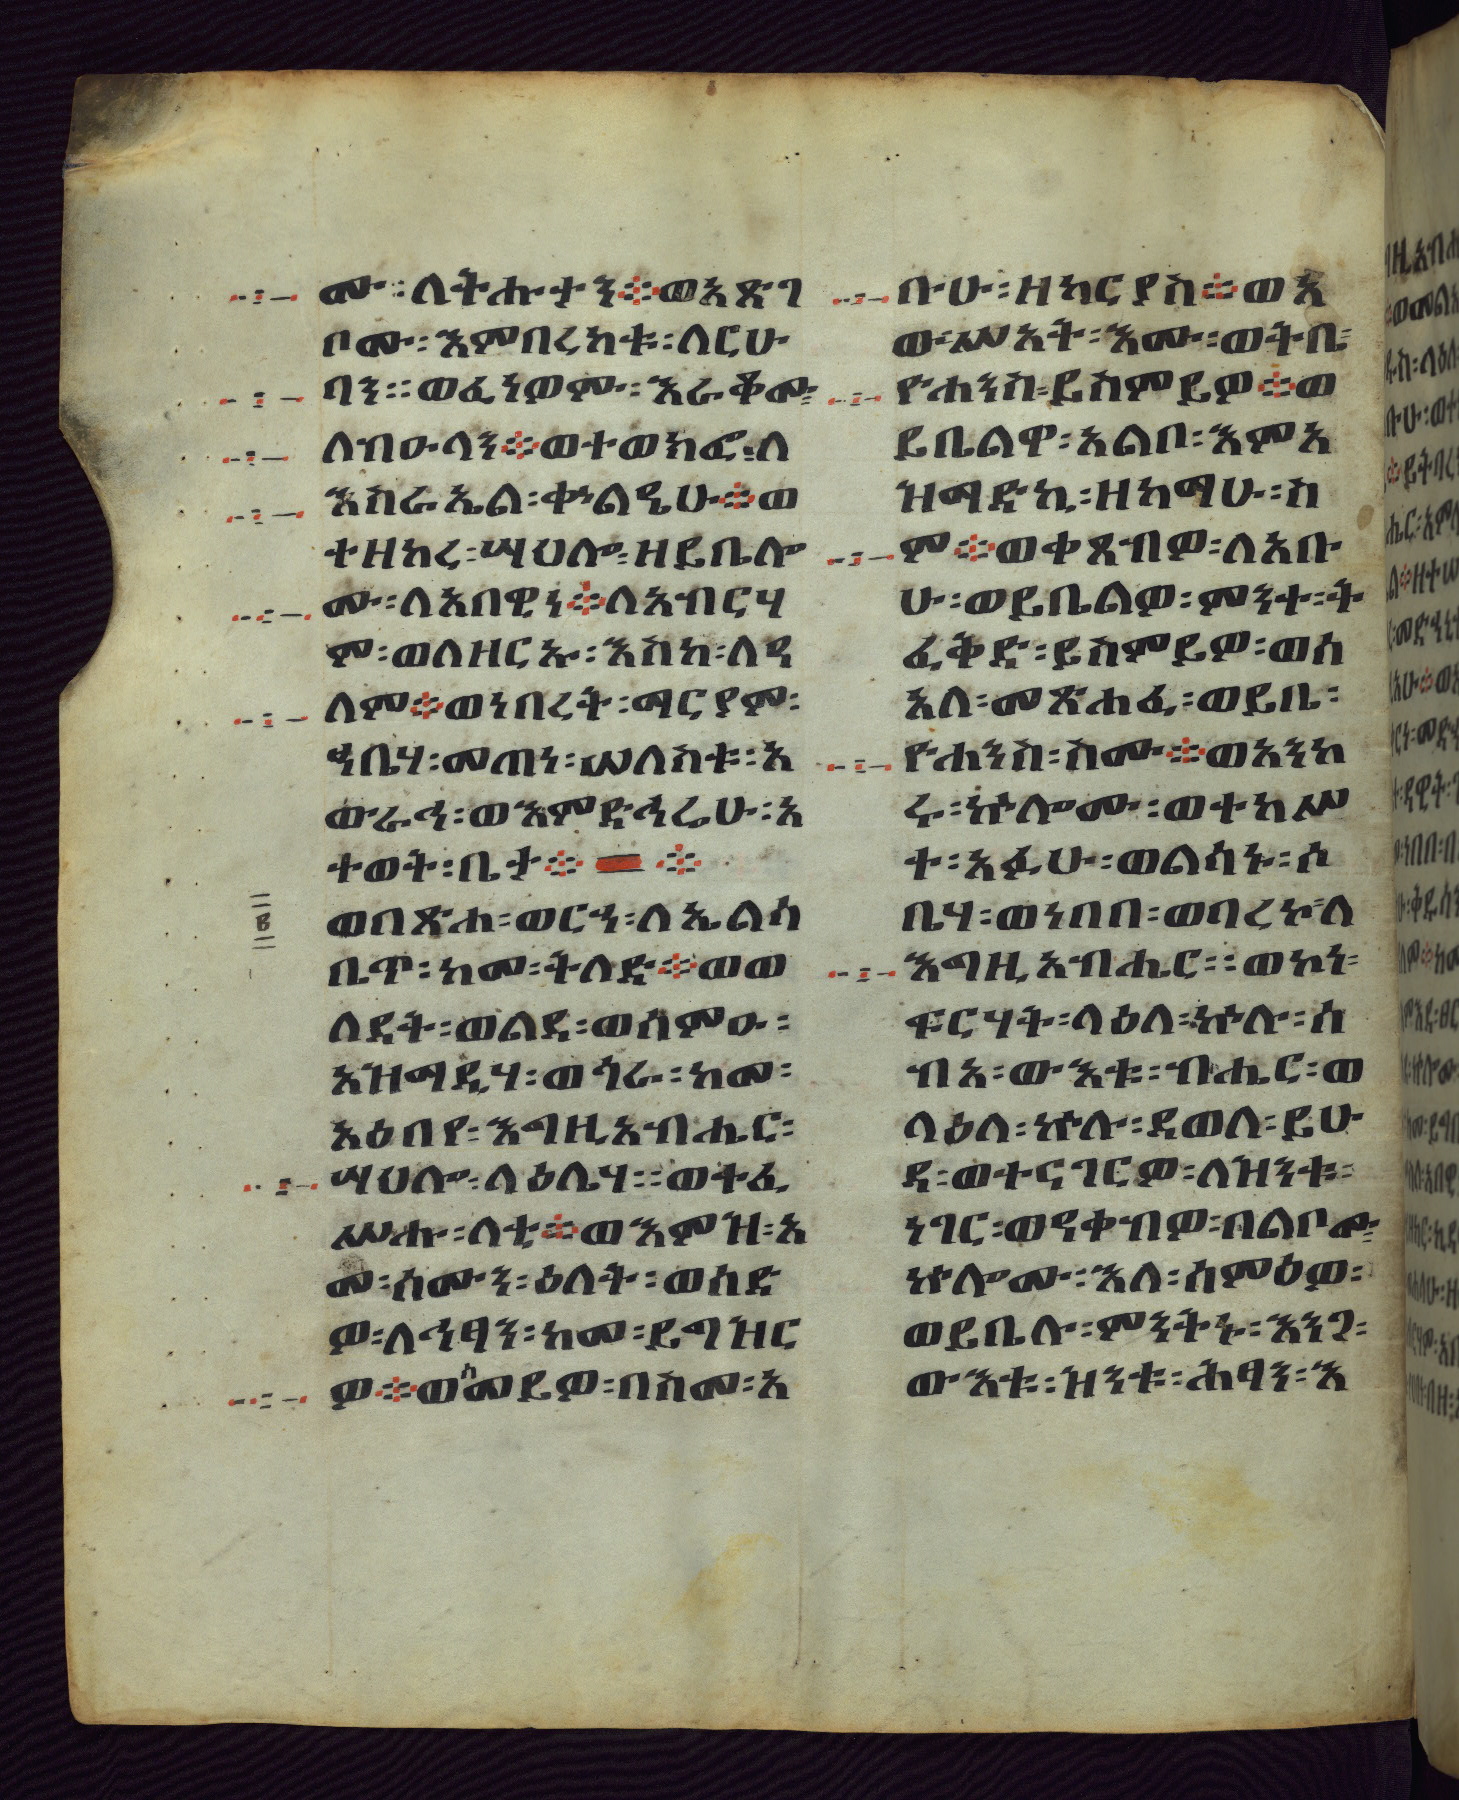 ሙ፡ለትሑታን፨ወአጽገ
ቦሙ፡እምበረከቱ፡ለርሁ
ባን፡፡ወፈነዎሙ፡እራቆሙ፡
ለብዑላን፨ወተወክፎ፡ለ
እስራኤል፡ቍልዔሁ፨ወ
ተዘከረ፡ሣህሎ፡ዘይቤሎ
ሙ፡ለአበዊነ፨ለአብርሃ
ም፡ወለዘርኡ፡እስከ፡ለዓ
ለም፨ወነበረት፡ማርያም፡
ኀቤሃ፡መጠነ፡ሠለስቱ፡አ
ውራኅ፡ወእምድኅሬሁ፡አ
ተወት፡ቤታ፨ ፨
ወበጽሐ፡ወርኀ፡ለኤልሳ
ቤጥ፡ከመ፡ትለድ፨ወወ
ለደት፡ወልደ፡ወሰምዑ፡
አዝማዲሃ፡ወጎራ፡ከመ፡
አዕበየ፡እግዚአብሔር፡
ሣህሎ፡ላዕሌሃ፡፡ወተፈ
ሥሑ፡ላቲ፨ወእምዝ፡አ
መ፡ሰሙን፡ዕለት፡ወሰድ
ዎ፡ለኅፃን፡ከመ፡ይግዝር
ዎ፨ወሰመይዎ፡በስመ፡አ
፪
ቡሁ፡ዘካርያስ፨ወአ
ውሥአት፡እሙ፡ወትቤ፡
ዮሐንስ፡ይስምይዎ፨ወ
ይቤልዋ፡አልቦ፡እምአ
ዝማድኪ፡ዘከማሁ፡ስ
ም፨ወቀጸብዎ፡ለአቡ
ሁ፡ወይቤልዎ፡ምንተ፡ት
ፈቅድ፡ይስምይዎ፡ወሰ
አለ፡መጽሐፈ፡ወይቤ፡
ዮሐንስ፡ስሙ፨ወአንከ
ሩ፡ኵሎሙ፡ወተከሥ
ተ፡አፉሁ፡ወልሳኑ፡ሶ
ቤሃ፡ወነበበ፡ወባረኮ፡ለ
እግዚአብሔር፡፡ወኮነ፡
ፍርሃት፡ላዕለ፡ኵሉ፡ሰ
ብአ፡ውእቱ፡ብሔር፡ወ
ላዕለ፡ኵሉ፡ደወለ፡ይሁ
ዳ፡ወተናገርዎ፡ለዝንቱ፡
ነገር፡ወዓቀብዎ፡በልቦሙ፡
ኵሎሙ፡እለ፡ሰምዕዎ፡
ወይቤሉ፡ምንትኑ፡እንጋ፡
ውእቱ፡ዝንቱ፡ሕፃን፡እ